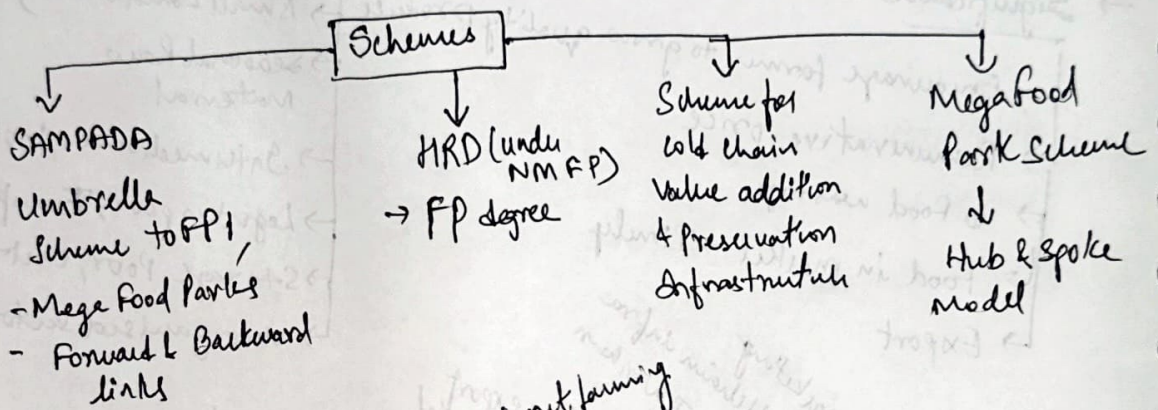 Schemes
SAMPADA
Umbrella
Scheme to FPI,
- Mega Food Parks
- Forward & Backward
links
HRD (under
NMFP)
→ FP degree
Scheme for
cold chain
value addition
& Preservation
Infrastructure
Mega Food
Park Scheme
↓
Hub & Spoke
Model
farming